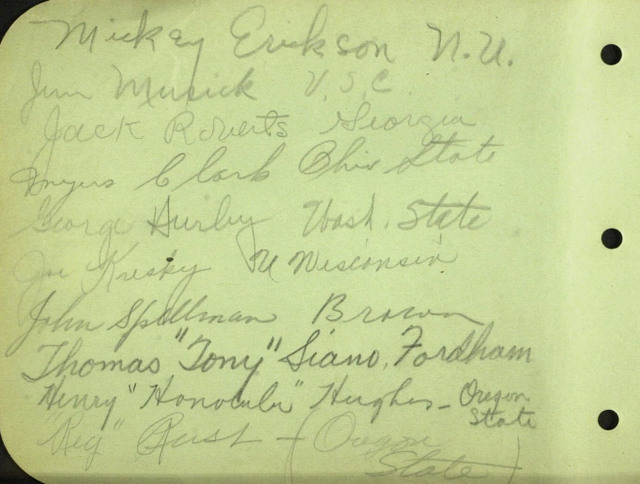 Mickey Erickson N.U.
Jim Musick U.S.C.
Jack Roberts Georgia
Myers Clark Ohio State
George Hurley Wash. State
Joe Kresky U Wisconsin
John Spellman Brown
Thomas "Tony" Siano, Fordham
Henry "Honolulu" Hughes - Oregon
State
"Reg" Rust - (Oregon
State)